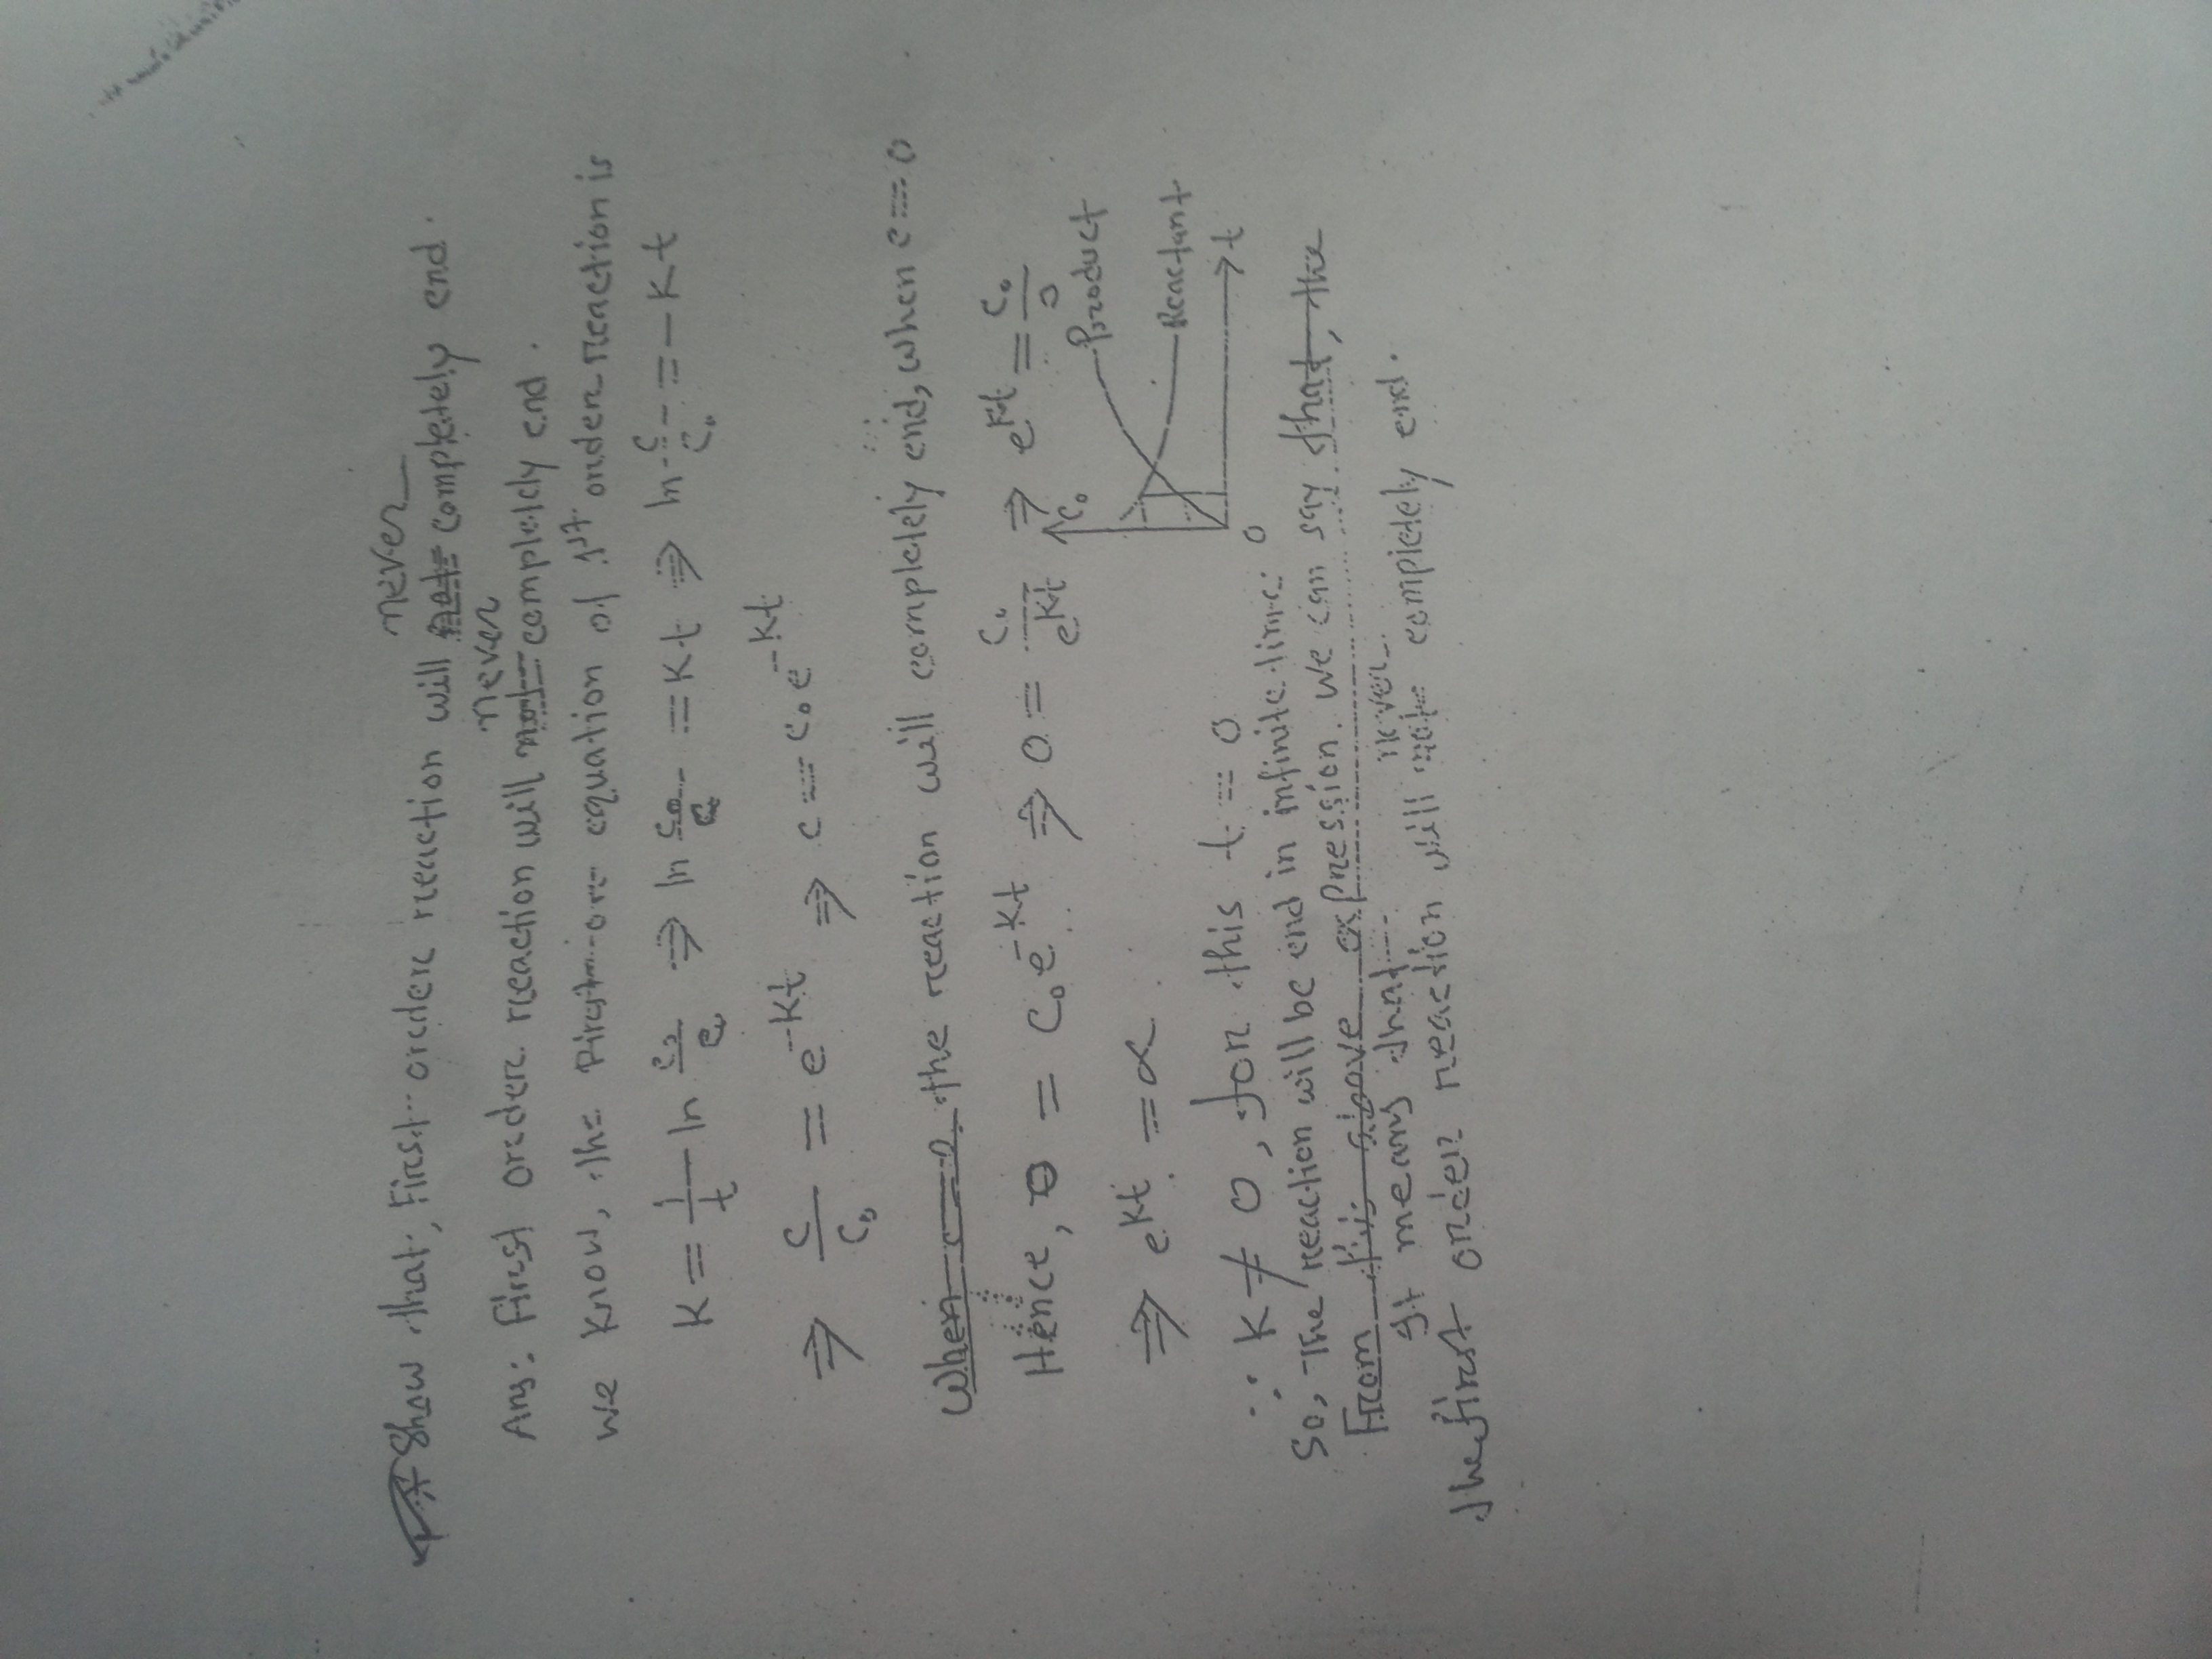 Show that, First order reaction will never completely end.
Ans: First order reaction will never completely end.
We know, the equation of 1st order reaction is
K = 1/t ln C₀/C ⇒ ln C₀/C = Kt ⇒ ln C/C₀ = -Kt
⇒ C/C₀ = e^-Kt ⇒ C = C₀e^-Kt
When C = 0 the reaction will completely end, when C = 0
Hence, 0 = C₀e^-Kt ⇒ 0 = C₀/e^Kt ⇒ e^Kt = C₀/0
⇒ e^Kt = ∝
C₀
Product
Reactant
t
0
∵ K ≠ 0, for this t = 0
So, The reaction will be end in infinite time.
From this above expression. we can say that, the
It means that
the first order reaction will never completely end.